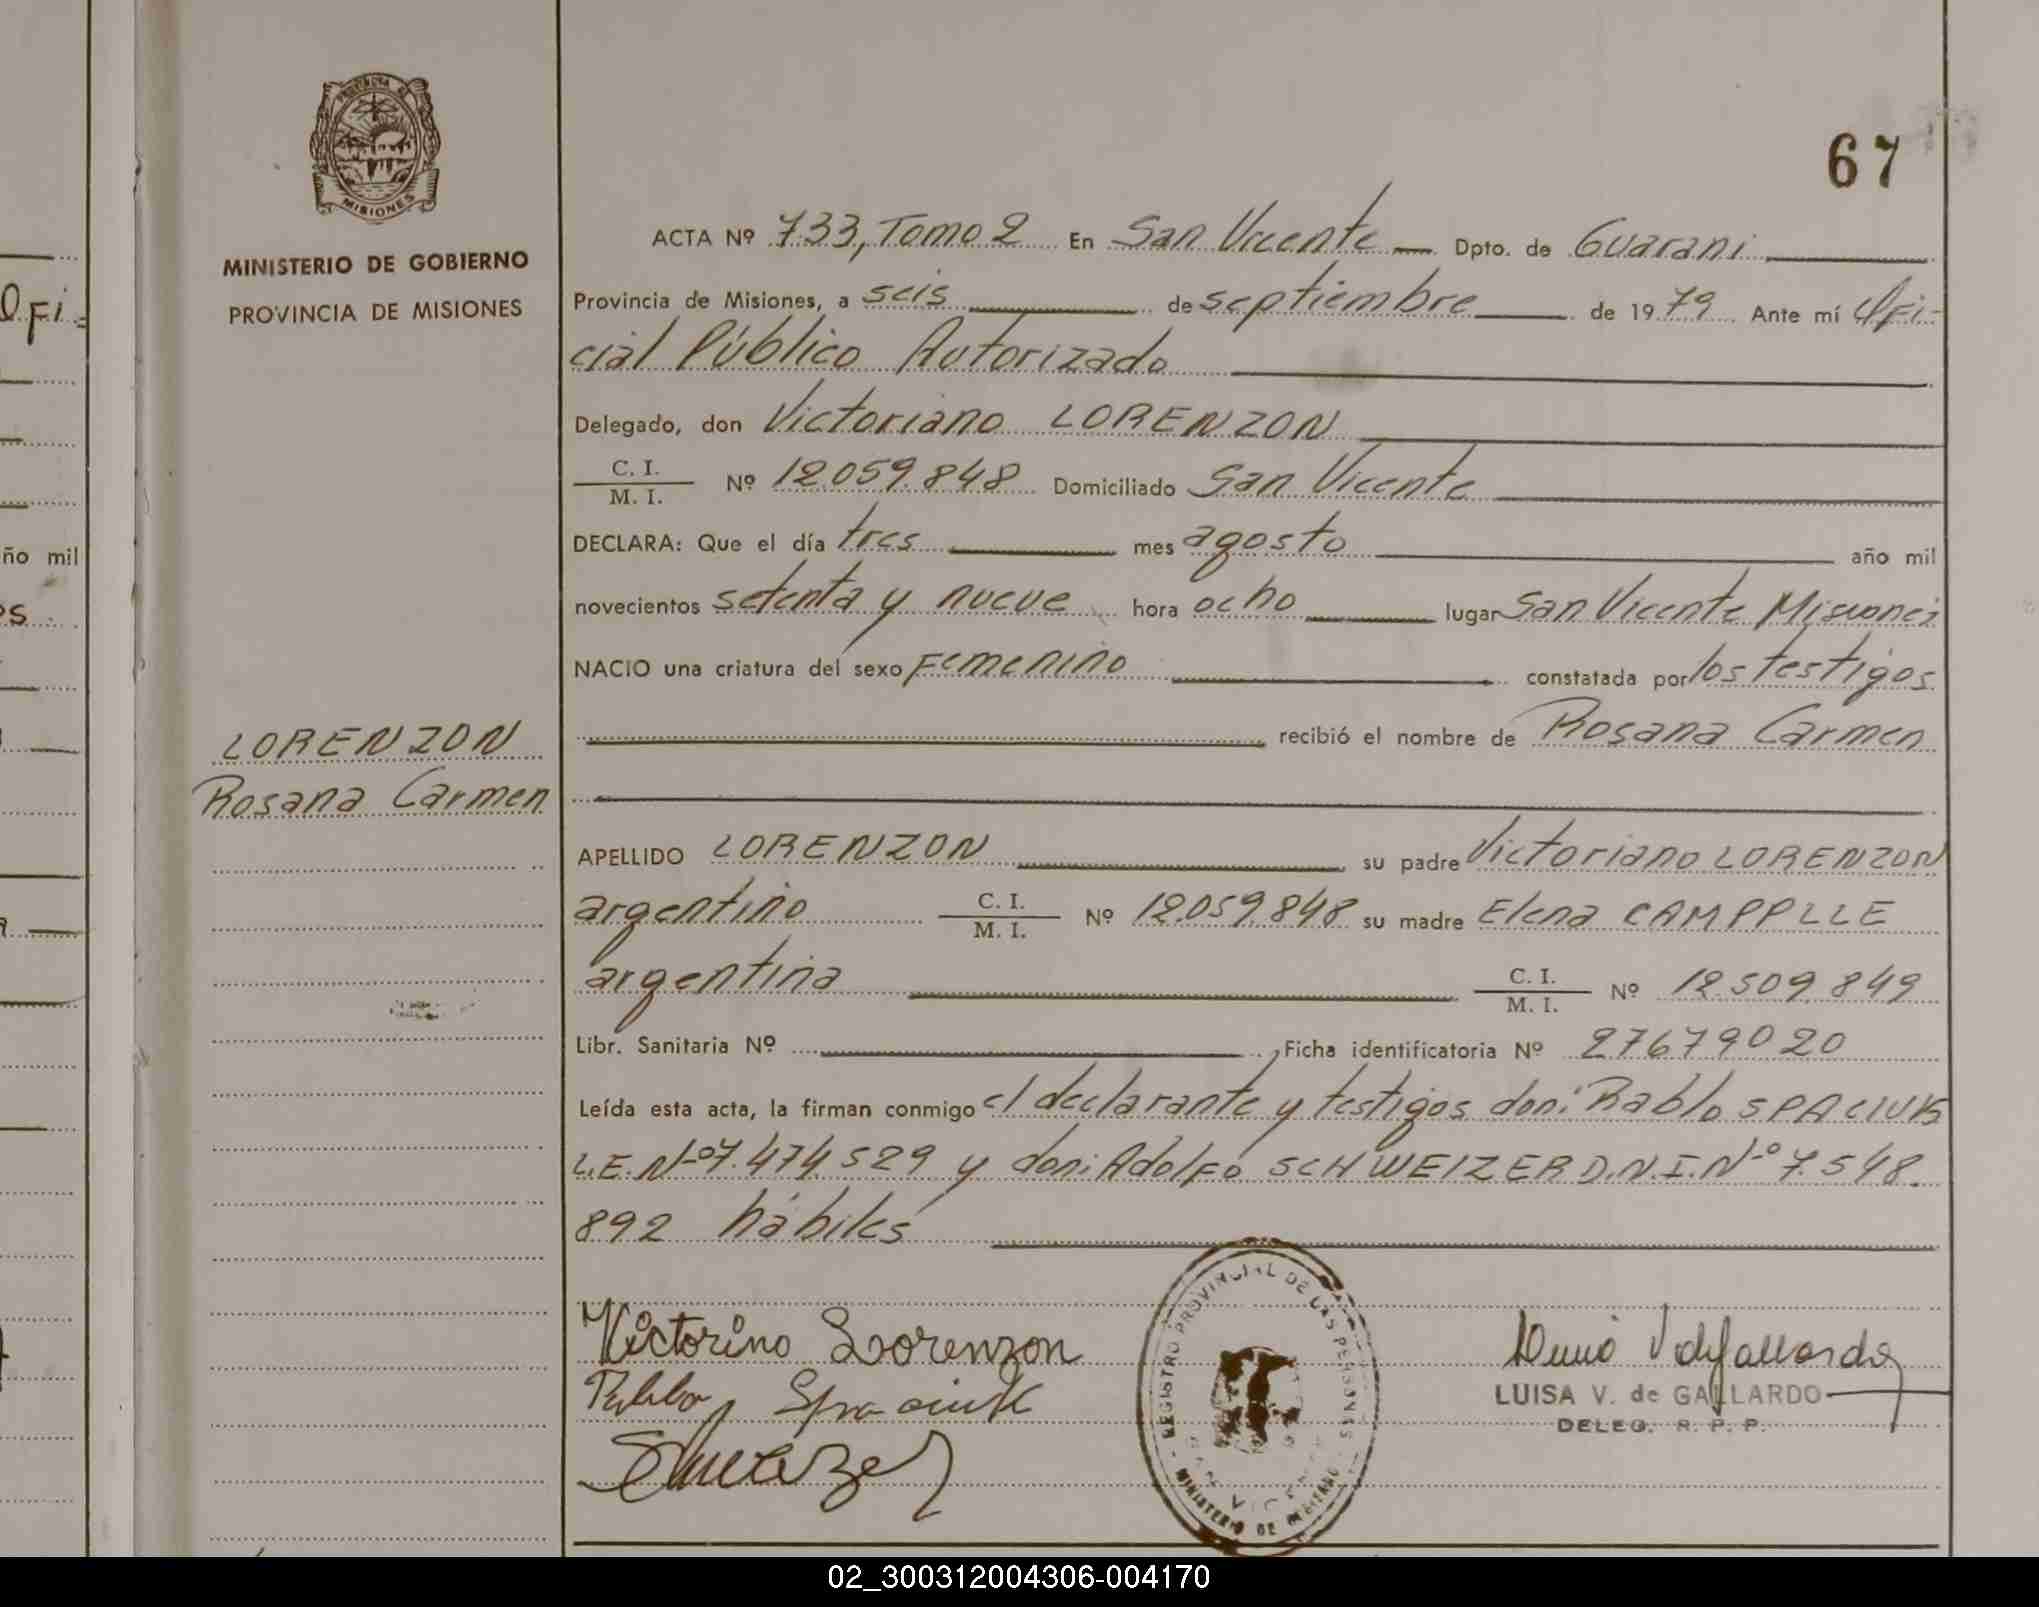 67
MINISTERIO DE GOBIERNO
PROVINCIA DE MISIONES
ACTA Nº 733, Tomo 2 En San Vicente Dpto. de Guarani
Provincia de Misiones, a seis de septiembre de 1979 Ante mí Ofi-
cial Público Autorizado
Delegado, don Victoriano LORENZON
C. I.
M. I. Nº 12.059.848 Domiciliado San Vicente
DECLARA: Que el día tres mes agosto año mil
novecientos setenta y nueve hora ocho lugar San Vicente Misiones
NACIO una criatura del sexo Femenino constatada por los testigos
recibió el nombre de Rosana Carmen
LORENZON
Rosana Carmen
APELLIDO LORENZON su padre Victoriano LORENZON
argentino C. I.
M. I. Nº 12.059.848 su madre Elena CAMPPLLE
argentina C. I.
M. I. Nº 12.509.849
Libr. Sanitaria Nº Ficha identificatoria Nº 27679020
Leída esta acta, la firman conmigo el declarante y testigos don: Pablo SPACIUK
L.E. Nº 7.474.529 y don: Adolfo SCHWEIZER D.N.I. Nº 7.548.
892 hábiles
Victorino Lorenzon
Pablo Spaciuk
LUISA V. de GALLARDO
DELEG. R. P. P.
REGISTRO PROVINCIAL DE LAS PERSONAS
MINISTERIO DE GOBIERNO
MISIONES
Ofi-
ño mil
02_300312004306-004170